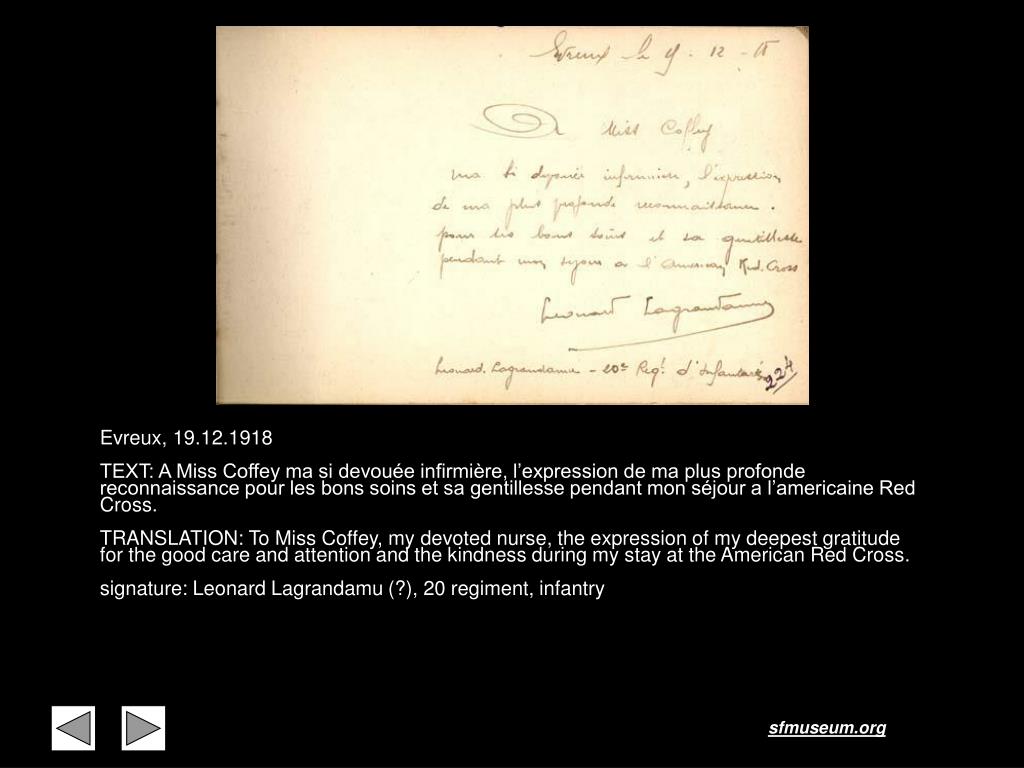 Evreux le 12 -
A Miss Coffey
ma si devouée infirmière, l'expression
de ma plus profonde reconnaissance.
pour les bons soins et sa gentillesse
pendant mon sejour a l'American Red. Cross
Leonard
Leonard. - 20e Regt. d'Infanterie
224
Evreux, 19.12.1918
TEXT: A Miss Coffey ma si devouée infirmière, l’expression de ma plus profonde
reconnaissance pour les bons soins et sa gentillesse pendant mon séjour a l’americaine Red
Cross.
TRANSLATION: To Miss Coffey, my devoted nurse, the expression of my deepest gratitude
for the good care and attention and the kindness during my stay at the American Red Cross.
signature: Leonard Lagrandamu (?), 20 regiment, infantry
sfmuseum.org